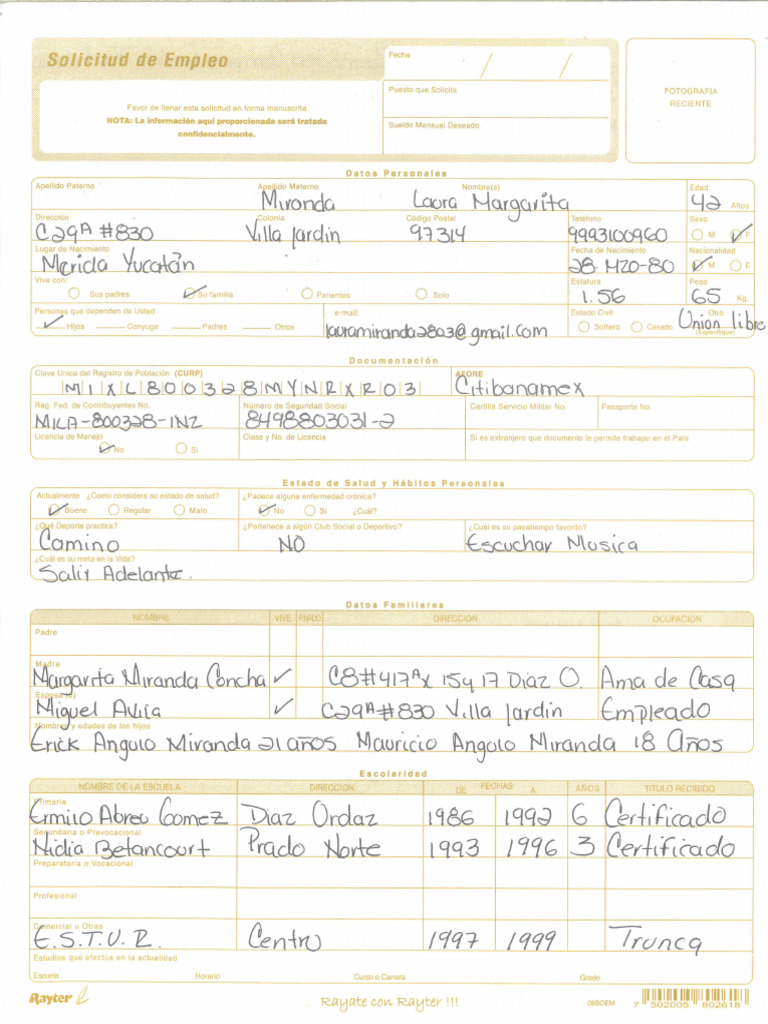 Solicitud de Empleo
Favor de llenar esta solicitud en forma manuscrita
NOTA: La información aquí proporcionada será tratada
confidencialmente.
Fecha / /
Puesto que Solicita
Sueldo Mensual Deseado
FOTOGRAFIA
RECIENTE
Datos Personales
Apellido Paterno Apellido Materno Nombre(s) Edad
Miranda Laura Margarita 42 Años
Dirección Colonia Código Postal Teléfono Sexo
C29A #830 Villa Jardin 97314 9993100960 M F
Lugar de Nacimiento Fecha de Nacimiento Nacionalidad
Merida Yucatán 28 MZO-80 M E
Vive con: Estatura Peso
Sus padres Su familia Parientes Solo 1.56 65 Kg.
Personas que dependen de Usted e-mail: Estado Civil Otro
Hijos Conyuge Padres Otros lauramiranda2803@gmail.com Soltero Casado Union libre
(Especifique)
Documentación
Clave Unica del Registro de Población (CURP) AFORE
MIXL800328MYNRXR03 Citibanamex
Reg. Fed. de Contribuyentes No. Número de Seguridad Social Cartilla Servicio Militar No. Pasaporte No.
MILA-800328-1N2 8498803031-2
Licencia de Manejo Clase y No. de Licencia Si es extranjero que documento le permite trabajar en el País
No Si
Estado de Salud y Hábitos Personales
Actualmente ¿Como considera su estado de salud? ¿Padece alguna enfermedad crónica?
Bueno Regular Malo No Si ¿Cuál?
¿Qué Deporte practica? ¿Pertenece a algún Club Social o Deportivo? ¿Cual es su pasatiempo favorito?
Camino NO Escuchar Musica
¿Cuál es su meta en la Vida?
Salir Adelante.
Datos Familiares
NOMBRE VIVE FINADO DIRECCION OCUPACION
Padre
Madre
Margarita Miranda Concha ✓ C8#417A x 15 y 17 Diaz O. Ama de Casa
Esposa (o)
Miguel Avila ✓ C29A #830 Villa Jardin Empleado
Nombre y edades de los hijos
Erick Angulo Miranda 21 años Mauricio Angulo Miranda 18 Años
Escolaridad
NOMBRE DE LA ESCUELA DIRECCION DE FECHAS A AÑOS TITULO RECIBIDO
Primaria
Ermilo Abreu Gomez Diaz Ordaz 1986 1992 6 Certificado
Secundaria o Prevocacional
Nidia Betancourt Prado Norte 1993 1996 3 Certificado
Preparatoria o Vocacional
Profesional
Comercial u Otras
E.S.T.U.R. Centro 1997 1999 Trunca
Estudios que efectúa en la actualidad
Escuela Horario Curso o Carrera Grado
Rayter Rayate con Rayter !!! 08SOEM 7 502005 802618